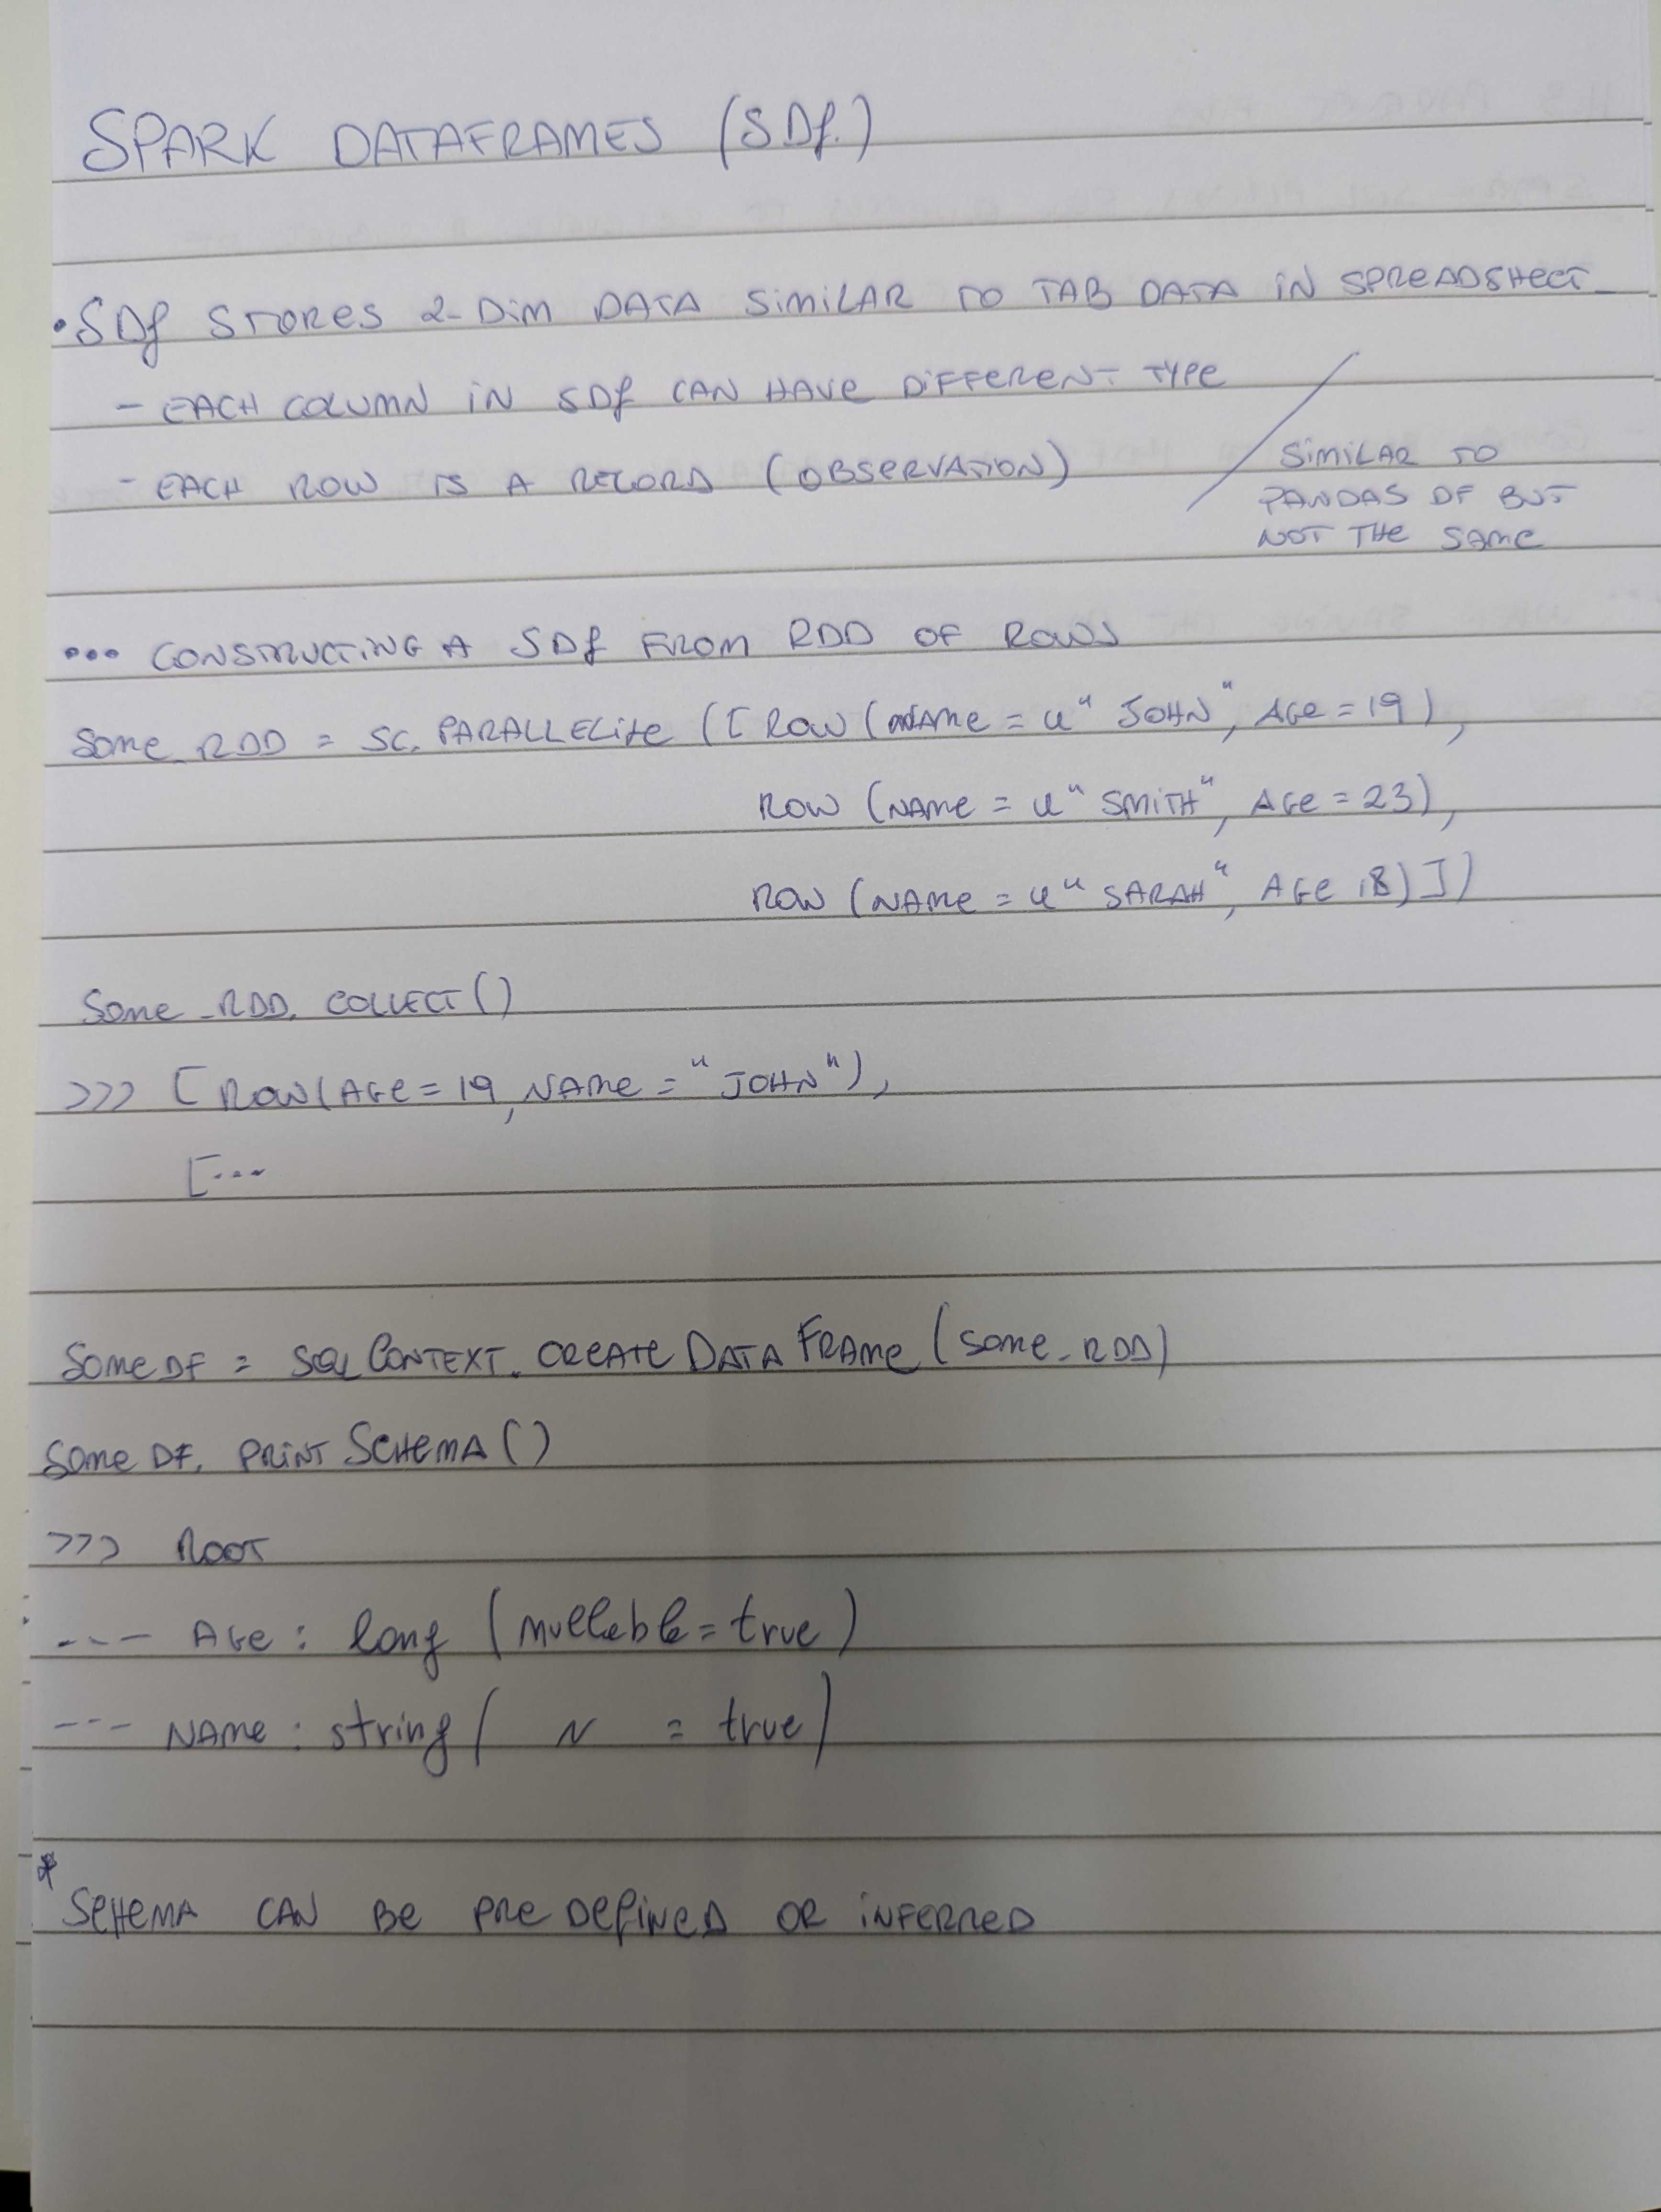 SPARK DATAFRAMES (SDf.)
• SDf STORES 2-DIM DATA SIMILAR TO TAB DATA IN SPREADSHEET
- EACH COLUMN IN SDf CAN HAVE DIFFERENT TYPE
- EACH ROW IS A RECORD (OBSERVATION)
SIMILAR TO
PANDAS DF BUT
NOT THE SAME
••• CONSTRUCTING A SDf FROM RDD OF ROWS
SOME_RDD = SC. PARALLELIZE ([ROW (NAME = u"JOHN", AGE = 19),
ROW (NAME = u"SMITH", AGE = 23),
ROW (NAME = u"SARAH", AGE 18)])
SOME_RDD. COLLECT()
>>> [ROW(AGE = 19, NAME = "JOHN"),
[...
SOMEDF = SQLCONTEXT. CREATE DATA FRAME (SOME_RDD)
SOME DF. PRINT SCHEMA()
>>> ROOT
---- AGE: long (nullable = true)
--- NAME: string ( N = true)
* SCHEMA CAN BE PRE DEFINED OR INFERRED